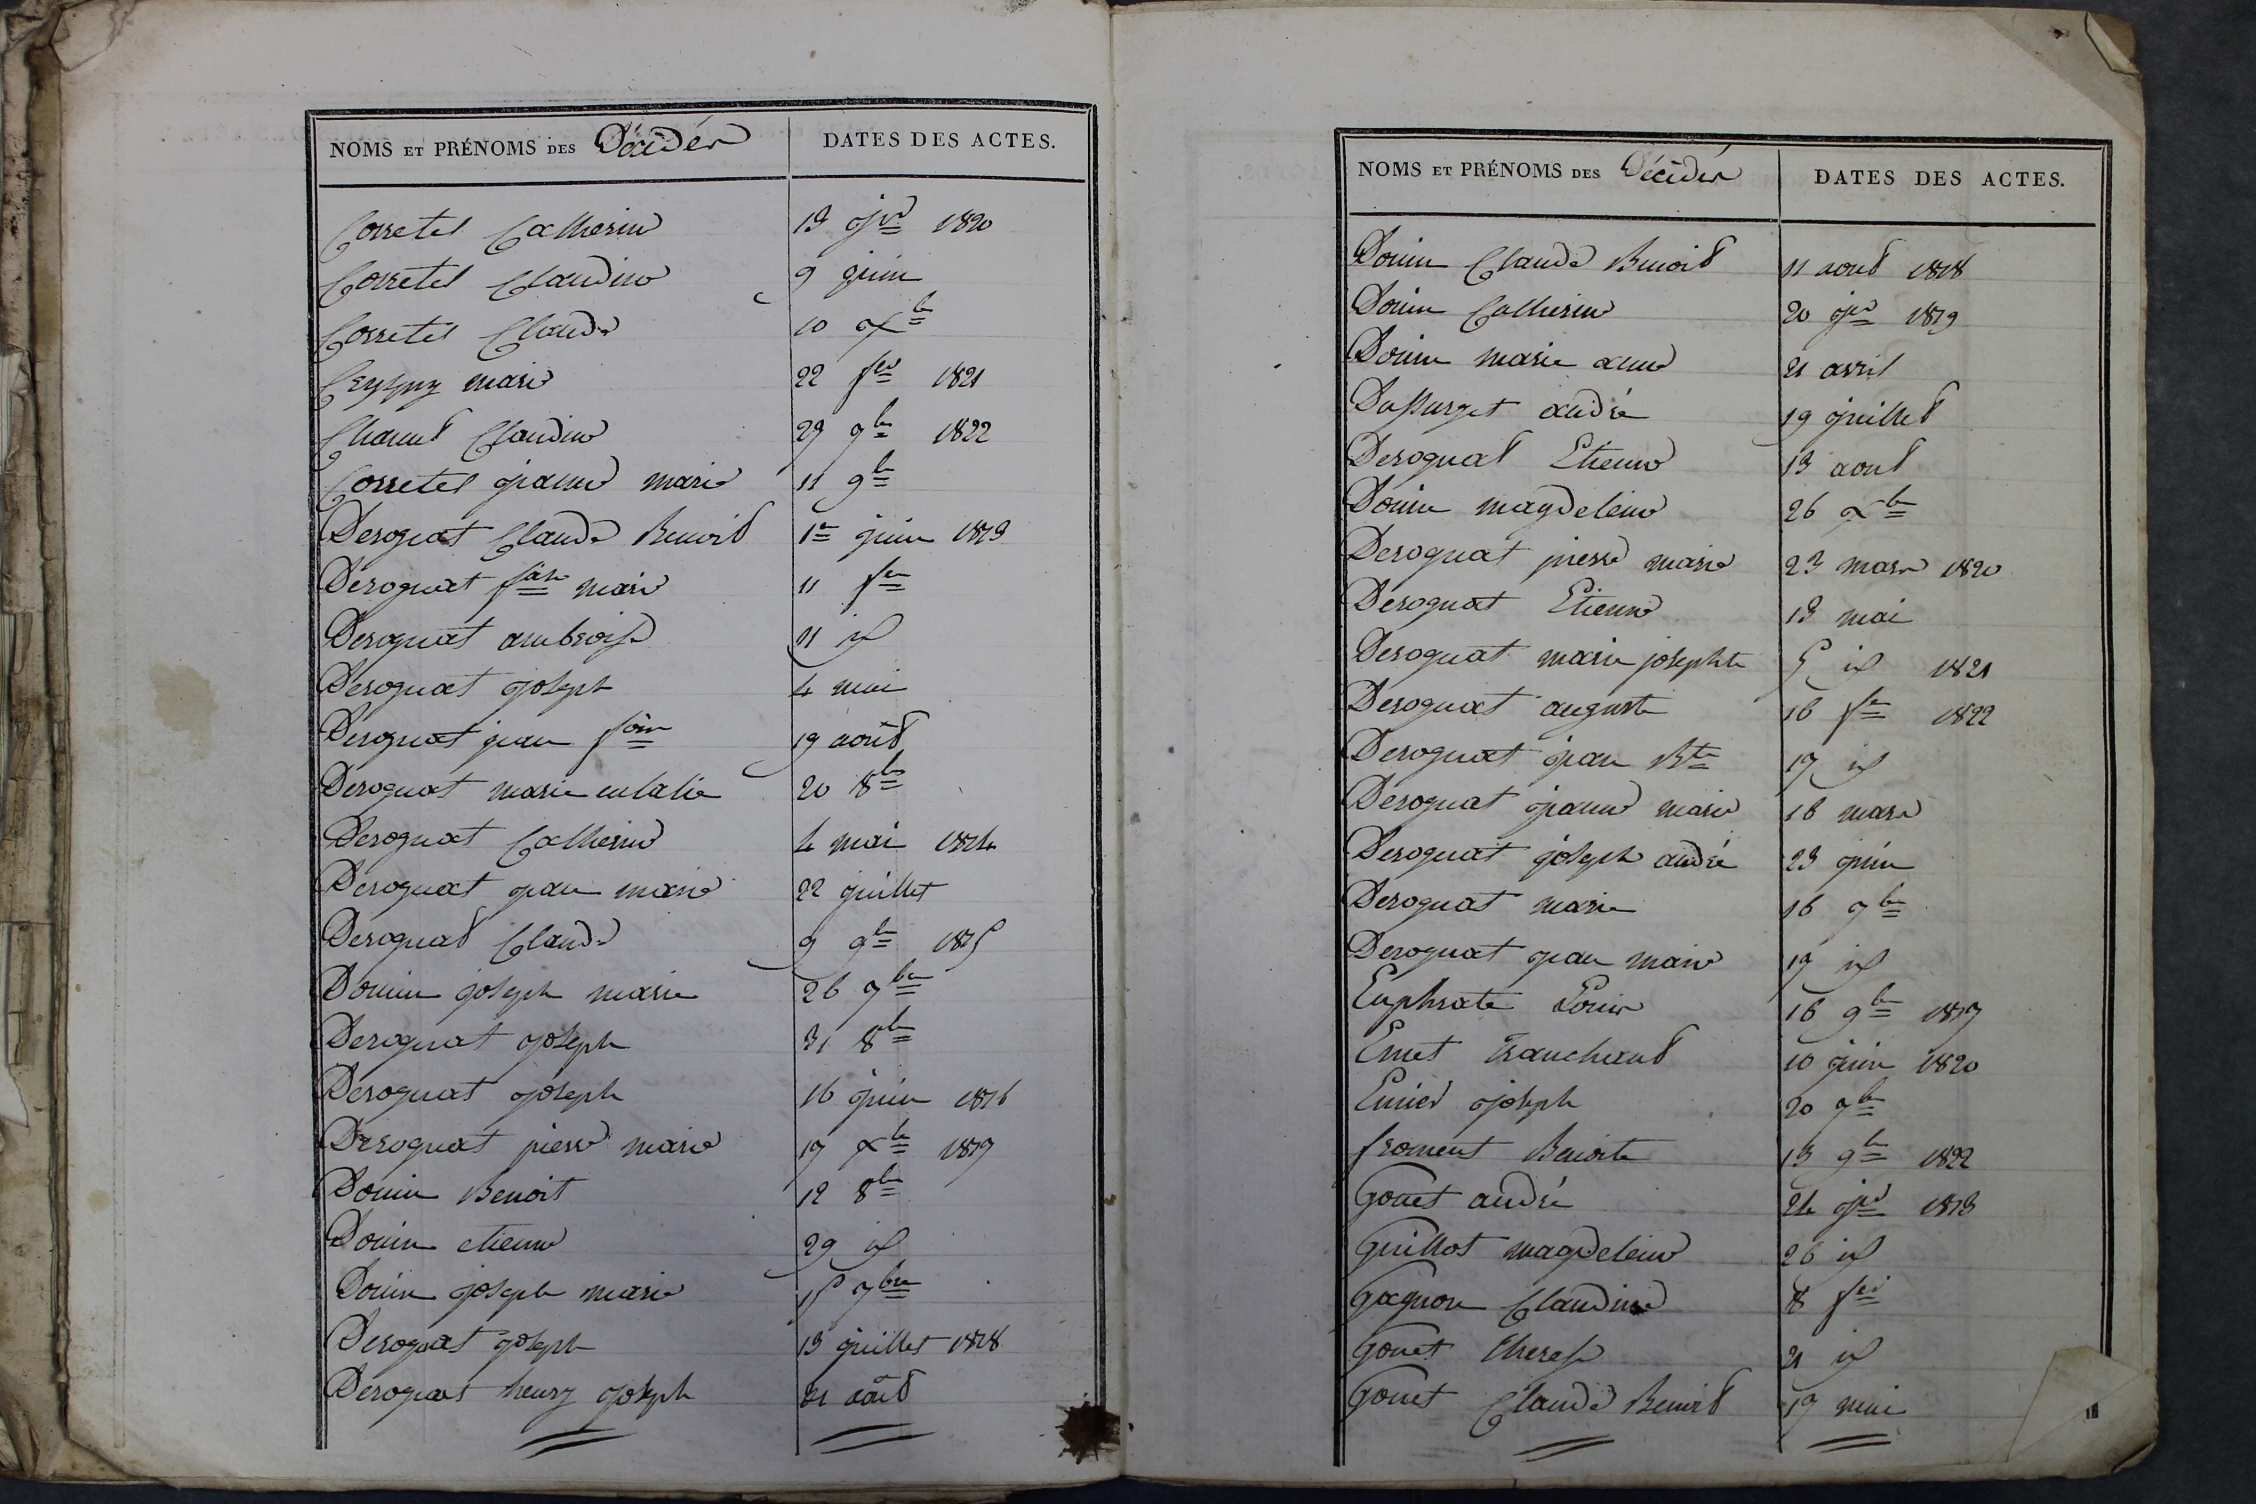 NOMS ET PRÉNOMS DES Décédés DATES DES ACTES.
Corretel Catherine 13 jer 1820
Corretel Claudine 9 juin
Corretel Claude 10 xbre
marie 22 fer 1821
Claudine 29 9bre 1822
Corretel jeanne marie 11 9bre
Derognat Claude Benoit 1er juin 1813
Derognat fçois marie 11 fer
Derognat ambroise 11 id
Derognat joseph 4 mai
Derognat jean fçois 19 août
Derognat marie eulalie 20 8bre
Derognat Catherine 4 mai 1814
Derognat jean marie 22 juillet
Derognat Claude 9 9bre 1815
Douin joseph marie 26 7bre
Derognat joseph 31 8bre
Derognat joseph 16 juin 1816
Derognat pierre marie 17 xbre 1817
Douin Benoit 12 8bre
Douin etienne 29 id
Douin joseph marie 15 7bre
Derognat joseph 13 juillet 1818
Derognat henry joseph 21 août
NOMS ET PRÉNOMS DES Décédés DATES DES ACTES.
Douin Claude Benoit 11 aout 1818
Douin Catherine 20 jer 1819
Douin marie anne 21 avril
andré 19 juillet
Derognat Etienne 13 aout
Douin magdeleine 26 xbre
Derognat pierre marie 23 mars 1820
Derognat Etienne 13 mai
Derognat marie josephte 5 id 1821
Derognat auguste 16 fer 1822
Derognat jean Bte 17 id
Derognat jeanne marie 16 mars
Derognat joseph andré 23 juin
Derognat marie 16 7bre
Derognat jean marie 17 id
Euphrate Louis 16 9bre 1817
Emet Franchant 10 juin 1820
joseph 20 7bre
froment Benoite 13 9bre 1822
Gouet andré 24 jer 1813
Guillot magdeleine 26 id
Gagnon Claudine 8 fer
Gouet therese 21 id
Gouet Claude Benoit 17 mai